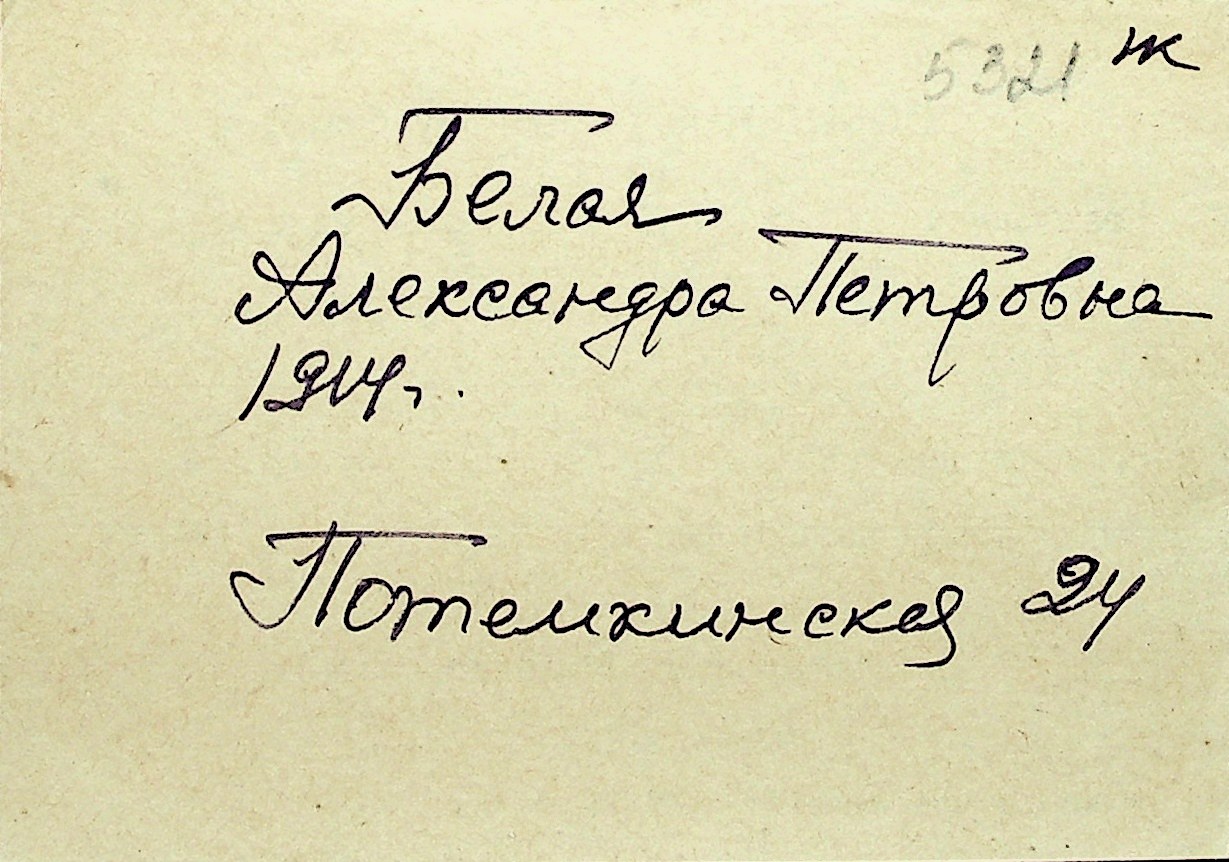 5321 ж
Белая
Александра Петровна
1914г.
Потемкинская 24